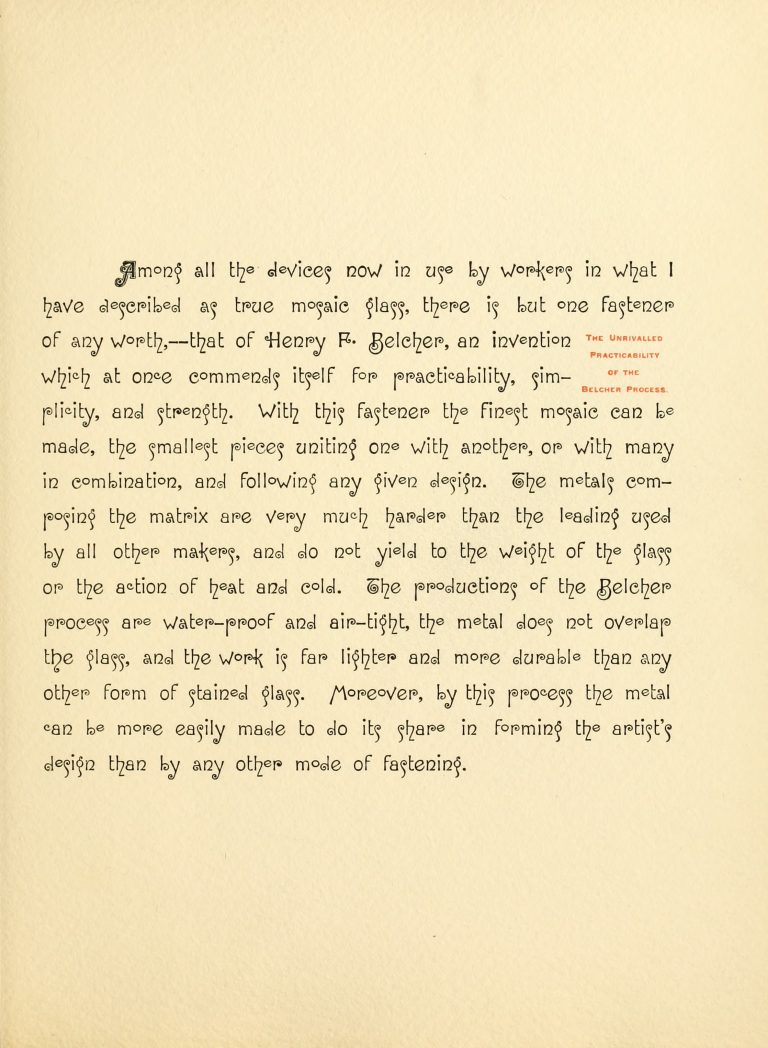 Among all the devices now in use by workers in what I
have described as true mosaic glass, there is but one fastener
of any worth,--that of Henry F. Belcher, an invention
which at once commends itself for practicability, sim-
plicity, and strength. With this fastener the finest mosaic can be
made, the smallest pieces uniting one with another, or with many
in combination, and following any given design. The metals com-
posing the matrix are very much harder than the leading used
by all other makers, and do not yield to the weight of the glass
or the action of heat and cold. The productions of the Belcher
process are water-proof and air-tight, the metal does not overlap
the glass, and the work is far lighter and more durable than any
other form of stained glass. Moreover, by this process the metal
can be more easily made to do its share in forming the artist's
design than by any other mode of fastening.
The Unrivalled
Practicability
of the
Belcher Process.